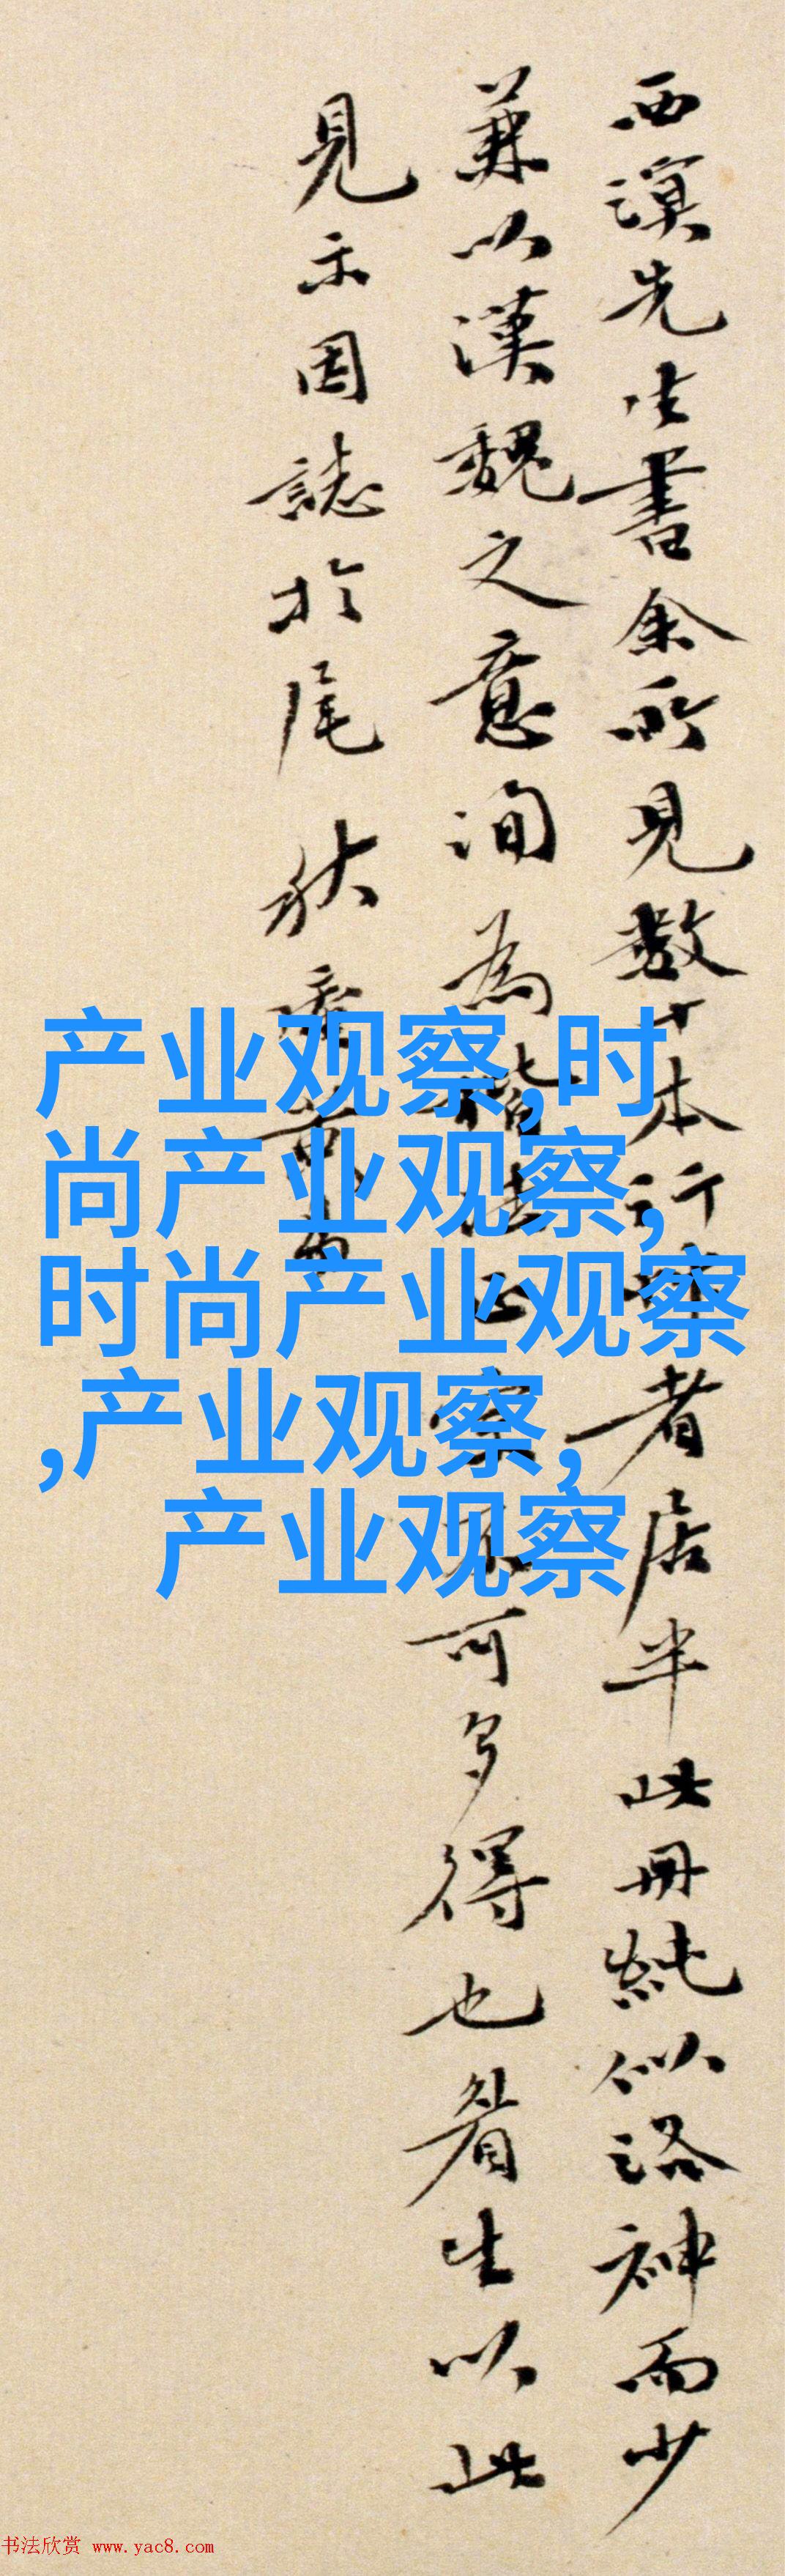 西溟先生書余所見數十本行者居半此冊純似洛神而少
兼以漢魏之意洵為楷法正宗不可多得也生以此
見示因誌於尾 秋
产业观察,时
尚产业观察,
时尚产业观察
,产业观察,
产业观察
书法欣赏 www.yac8.com